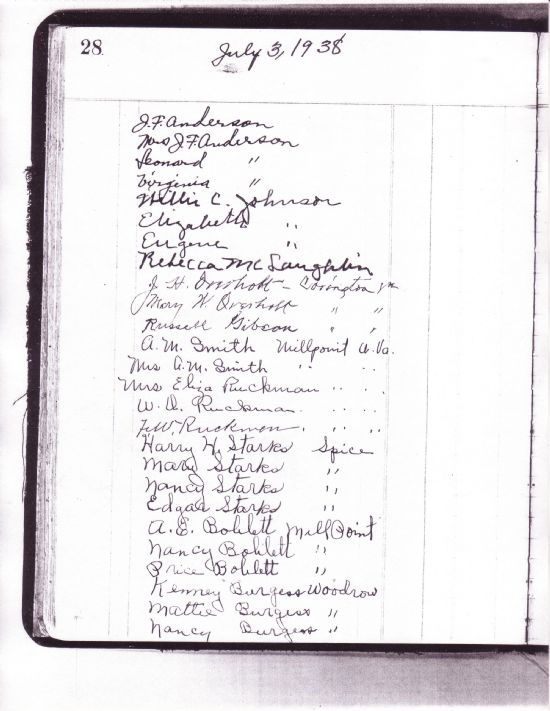 28 July 3, 1938
J.F. Anderson
Mrs J.F. Anderson
Leonard "
Virginia "
Willie C. Johnson
Elizabeth "
Eugene "
Rebecca McLaughlin
J. H. Overholt - Covington Va
Mary W. Overholt " "
Russell Gibson " "
A.M. Smith Millpoint W.Va.
Mrs A.M. Smith " "
Mrs Eliza Ruckman " "
W. A. Ruckman. " "
Ruckman. " "
Harry H. Starks Spice
Mary Starks "
Nancy Starks "
Edgar Starks "
A. E. Boblett Mill Point
Nancy Boblett "
Price Boblett "
Kenney Burgess Woodrow
Mattie Burgess "
Nancy Burgess "